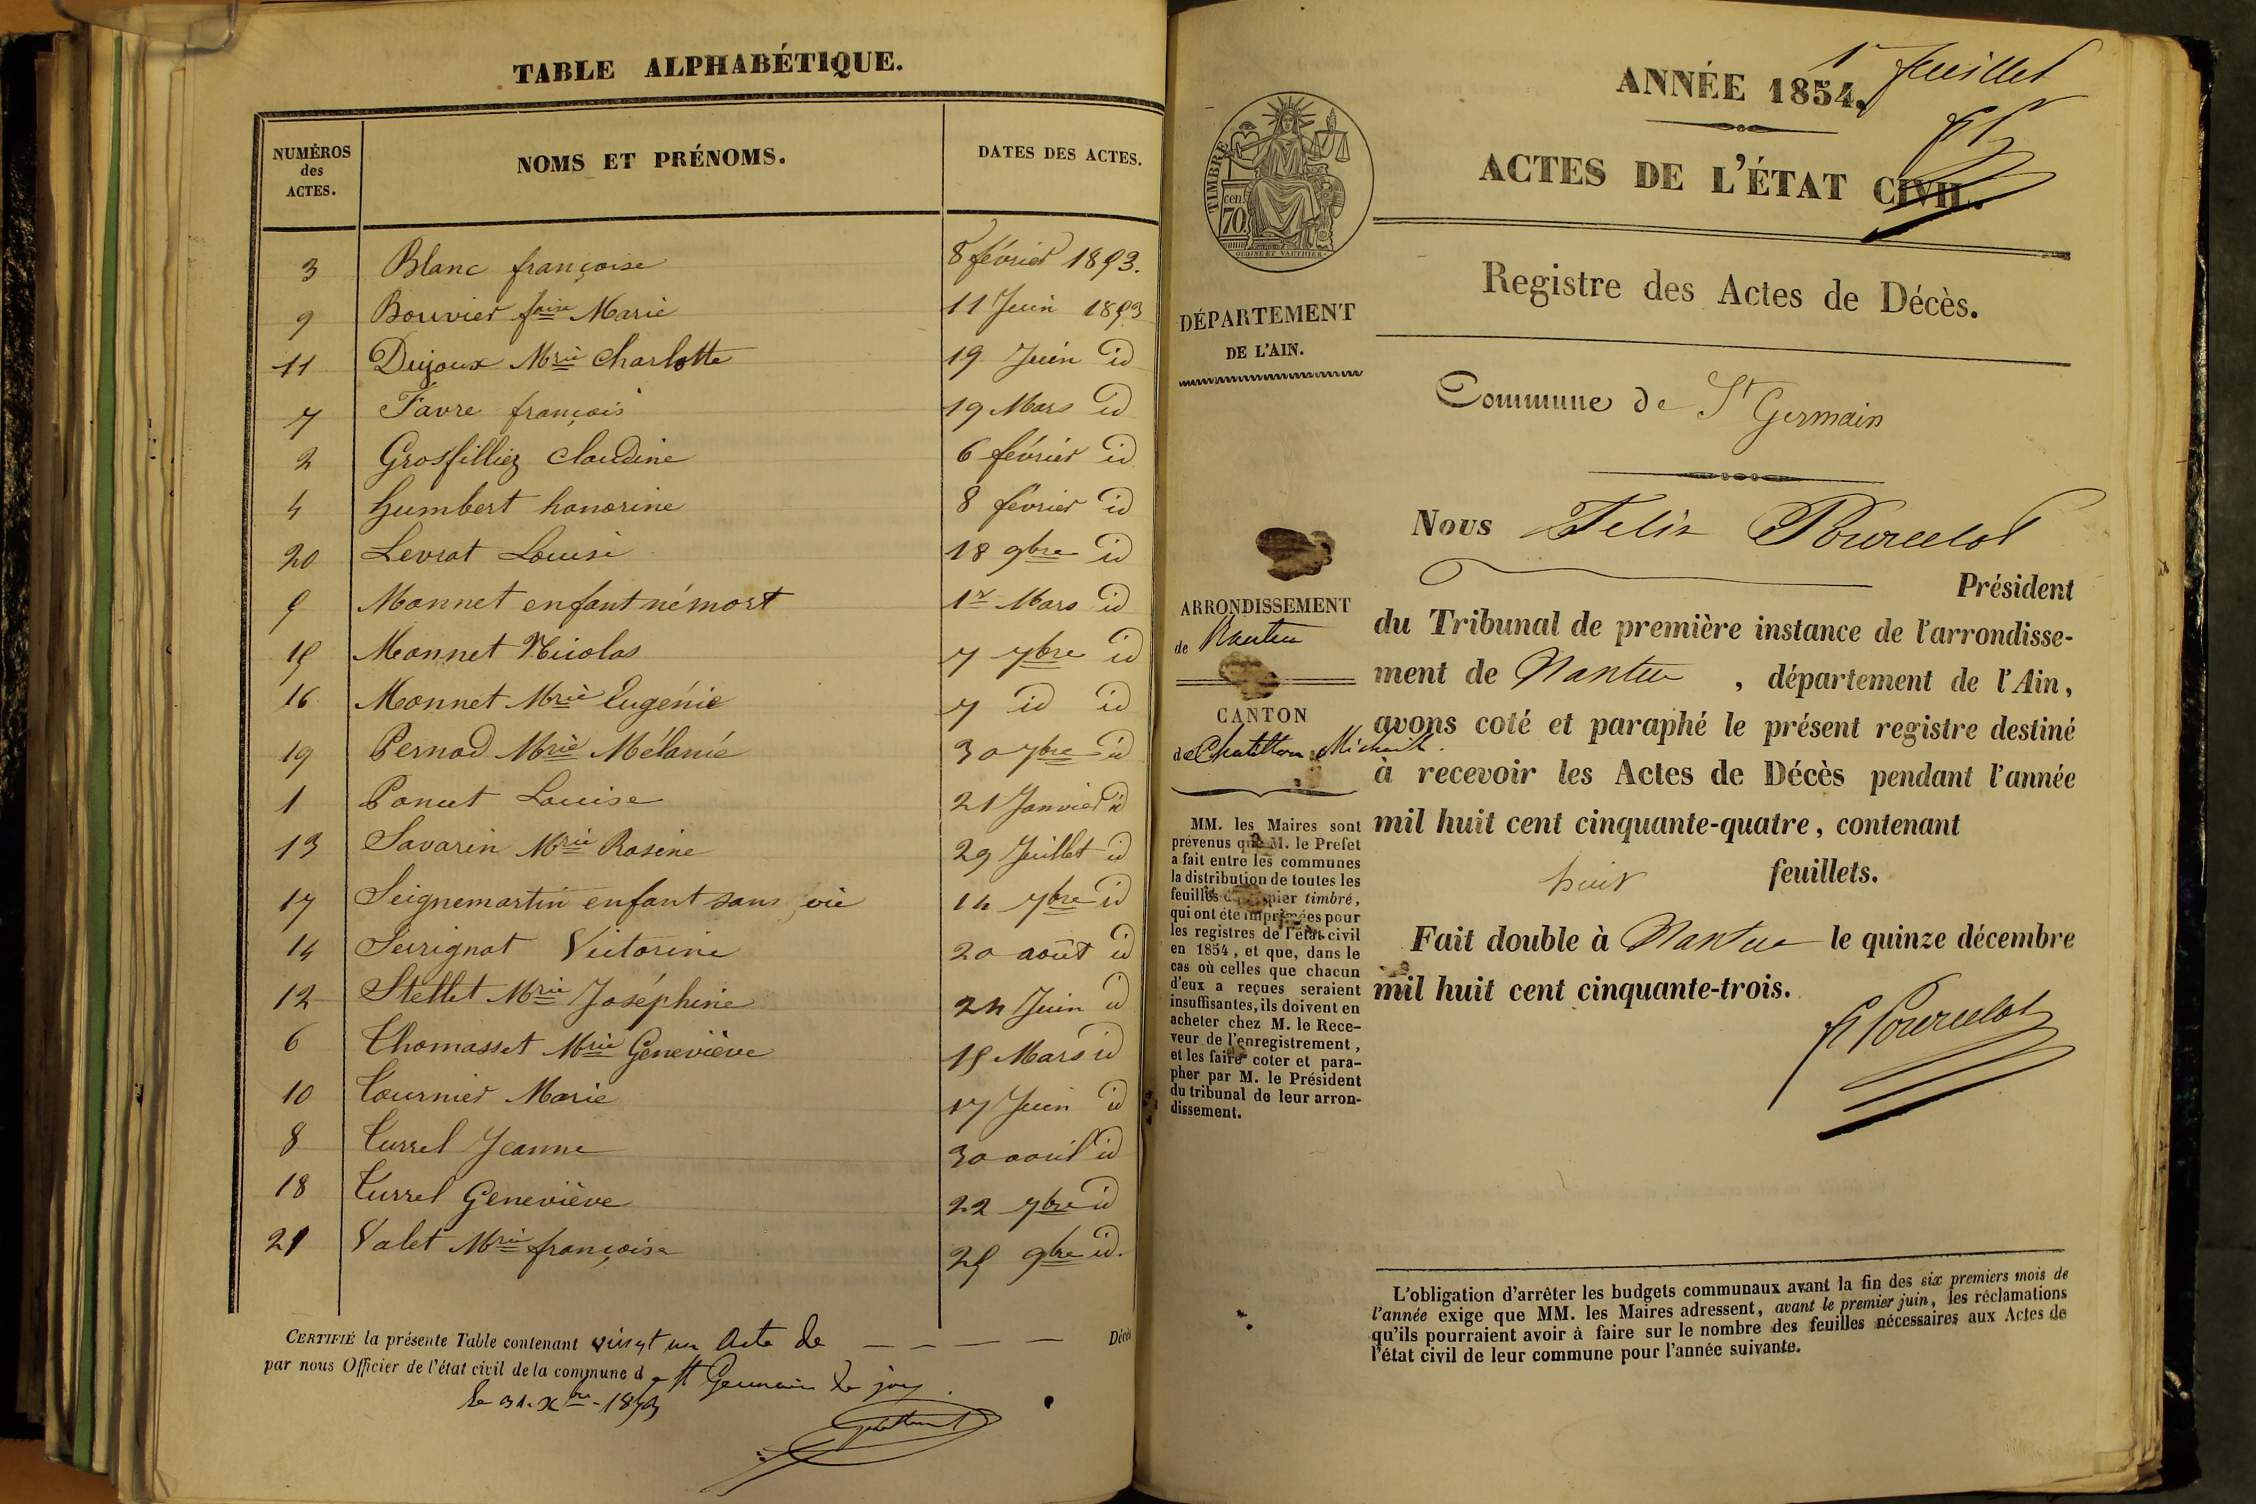 TABLE ALPHABÉTIQUE.
NUMÉROS des ACTES. NOMS ET PRÉNOMS. DATES DES ACTES.
3 Blanc françoise 8 février 1853.
9 Bouvier foise Marie 11 Juin 1853
11 Dujoux Mrie Charlotte 19 Juin id
7 Favre françois 19 Mars id
2 Grosfilliez Claudine 6 février id
4 humbert honorine 8 février id
20 Levrat Louise 18 9bre id
5 Monnet enfant né mort 1er Mars id
15 Monnet Nicolas 7 7bre id
16 Monnet Mrie Eugénie 7 id id
19 Pernod Mrie Mélanie 30 7bre id
1 Poncet Louise 21 Janvier id
13 Savarin Mrie Rosine 29 Juillet id
17 Seignemartin enfant sans vie 14 7bre id
14 Serrignat Victorine 20 août id
12 Stellet Mrie Joséphine 24 Juin id
6 Thomasset Mrie Geneviève 15 Mars id
10 Tournier Marie 17 Juin id
8 Turrel Jeanne 30 avril id
18 Turrel Geneviève 22 7bre id
21 Valet Mrie françoise 25 9bre id.
CERTIFIÉ la présente Table contenant vingt un Acte de — — — — Décès
par nous Officier de l'état civil de la commune de St Germain de joux
le 31. Xbre - 1853
1r feuillet
ANNÉE 1854.
ACTES DE L'ÉTAT CIVIL.
TIMBRE
cen.
70
OUDINE ET VAUTHIER
Registre des Actes de Décès.
DÉPARTEMENT
DE L'AIN.
Commune de St Germain
ARRONDISSEMENT
de Nantua
CANTON
de Chatillon Michaille.
MM. les Maires sont
prévenus que M. le Préfet
a fait entre les communes
la distribution de toutes les
feuilles de papier timbré,
qui ont été imprimées pour
les registres de l'état-civil
en 1854, et que, dans le
cas où celles que chacun
d'eux a reçues seraient
insuffisantes, ils doivent en
acheter chez M. le Rece-
veur de l'enregistrement,
et les faire coter et para-
pher par M. le Président
du tribunal de leur arron-
dissement.
Nous Felix Pourcelot
Président
du Tribunal de première instance de l'arrondisse-
ment de Nantua , département de l'Ain,
avons coté et paraphé le présent registre destiné
à recevoir les Actes de Décès pendant l'année
mil huit cent cinquante-quatre, contenant
huit feuillets.
Fait double à Nantua le quinze décembre
mil huit cent cinquante-trois.
F Pourcelot
L'obligation d'arrêter les budgets communaux avant la fin des six premiers mois de
l'année exige que MM. les Maires adressent, avant le premier juin, les réclamations
qu'ils pourraient avoir à faire sur le nombre des feuilles nécessaires aux Actes de
l'état civil de leur commune pour l'année suivante.